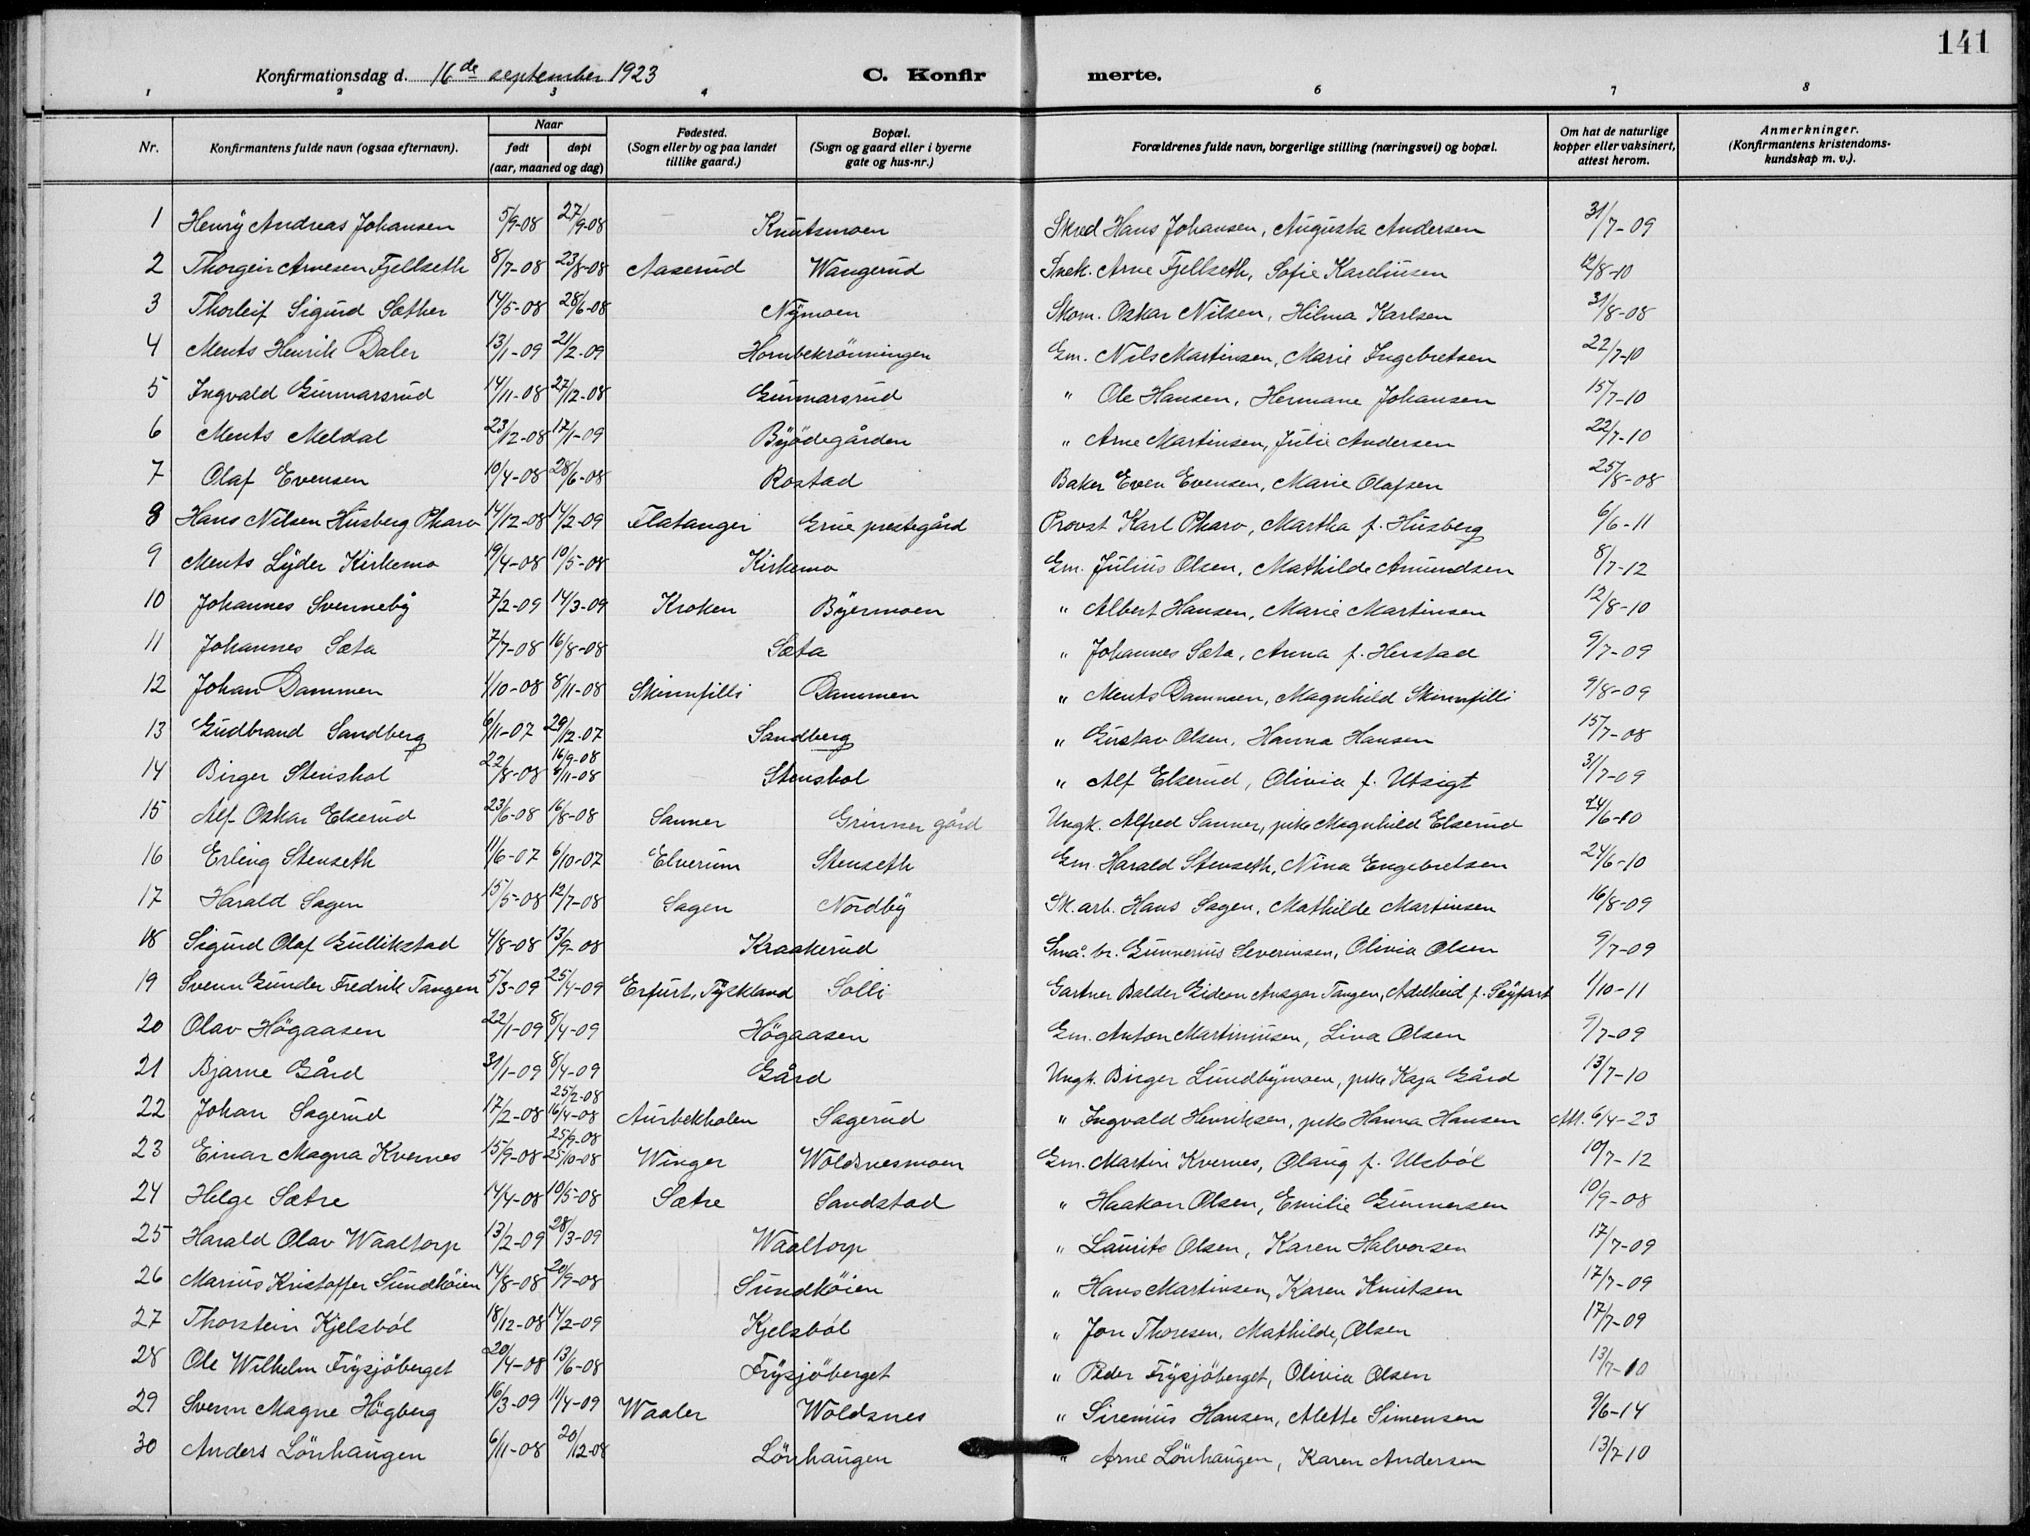 141
Konfirmationsdag d. 16de september 1923 C. Konfir merte.
1 2 3 4 6 7 8
Nr. Konfirmantens fulde navn (ogsaa efternavn). Naar født døpt (aar, maaned og dag) Fødested. (Sogn eller by og paa landet tillike gaard.) Bopæl. (Sogn og gaard eller i byerne gate og hus-nr.) Forældrenes fulde navn, borgerlige stilling (næringsvei) og bopæl. Om hat de naturlige kopper eller vaksinert, attest herom. Anmerkninger. (Konfirmantens kristendoms-kundskap m. v.).
1 Henry Andreas Johansen 5/9-08 27/9-08 Knutsmoen Skred Hans Johansen, Augusta Andersen 31/7-09
2 Thorgeir Arnesen Fjellseth 8/7-08 23/8-08 Aaserud Wangerud Snek. Arne Fjellseth, Sofie Kareliusen 12/8-10
3 Thorleif Sigurd Sæther 14/5-08 28/6-08 Nymoen Skom. Oskar Nilsen, Hilma Karlsen 31/8-08
4 Ments Henrik Daler 13/1-09 21/2-09 Hornbekrönningen Gm. Nils Martinsen, Marie Ingebretsen 22/7-10
5 Ingvald Gunnarsrud 14/11-08 27/12-08 Gunnarsrud " Ole Hansen, Hermane Johansen 15/7-10
6 Ments Meldal 23/12-08 17/1-09 Byödegården " Arne Martinsen, Julie Andersen 22/7-10
7 Olaf Evensen 10/4-08 28/6-08 Rostad Baker Even Evensen, Marie Olafsen 25/8-08
8 Hans Nilsen Husberg Pharo 14/12-08 14/2-09 Flatanger Grue prestegård Provst Karl Pharo, Martha f. Husberg 6/6-11
9 Ments Lyder Kirkemo 19/4-08 10/5-08 Kirkemo Gm. Julius Olsen, Mathilde Amundsen 8/7-12
10 Johannes Svenneby 7/2-09 14/3-09 Kroken Byermoen " Albert Hansen, Marie Martinsen 12/8-10
11 Johannes Sæta 7/7-08 16/8-08 Sæta " Johannes Sæta, Anna f. Herstad 9/7-09
12 Johan Dammen 1/10-08 8/11-08 Skinnfilli Dammen " Ments Dammen, Magnhild Skinnfilli 9/8-09
13 Gudbrand Sandberg 6/11-07 29/12-07 Sandberg " Gustav Olsen, Hanna Hansen 15/7-08
14 Birger Stenshol 22/8-08 16/9-08 6/11-08 Stenshol " Alf Elserud, Olivia f. Utsigt 31/7-09
15 Alf Oskar Elserud 23/6-08 16/8-08 Sanner Grinner gård Ungk. Alfred Sanner, pike Magnhild Elserud 24/6-10
16 Erling Stenseth 11/6-07 6/10-07 Elverum Stenseth Gm. Harald Stenseth, Nina Engebretsen 24/6-10
17 Harald Sagen 15/5-08 12/7-08 Sagen Nordby Sk. arb. Hans Sagen, Mathilde Martinsen 16/8-09
18 Sigurd Olaf Gullikstad 4/8-08 13/9-08 Kraakerud Små. br. Gunnerius Severinsen, Olivia Olsen 9/7-09
19 Svenn Gunder Fredrik Tangen 5/3-09 25/4-09 Erfurt, Tyskland Solli Gartner Balder Gideon Ansgar Tangen, Adelheid f. Seyfart 1/10-11
20 Olav Högaasen 22/1-09 8/4-09 Högaasen Gm. Anton Martiniusen, Lina Olsen 9/7-09
21 Bjarne Gård 31/1-09 8/4-09 Gård Ungk. Birger Lundbymoen, pike Kaja Gård 13/7-10
22 Johan Sagerud 17/2-08 25/2-08 16/4-08 Aurbekholen Sagerud " Ingvald Henriksen, pike Hanna Hansen Att. 6/4-23
23 Einar Magna Kvernes 15/9-08 25/9-08 25/10-08 Winger Woldsnesmoen Gm. Martin Kvernes, Olaug f. Ulsböl 10/7-12
24 Helge Sætre 14/4-08 10/5-08 Sætre Sandstad " Haakon Olsen, Emilie Gunnersen 10/9-08
25 Harald Olav Waaltorp 13/2-09 28/3-09 Waaltorp " Laurits Olsen, Karen Halvorsen 17/7-09
26 Marius Kristoffer Sundköien 14/8-08 20/9-08 Sundköien " Hans Martinsen, Karen Knutsen 17/7-09
27 Thorstein Kjelsböl 18/12-08 14/2-09 Kjelsböl " Jon Thoresen, Mathilde Olsen 17/7-09
28 Ole Wilhelm Frysjöberget 20/4-08 13/6-08 Frysjöberget " Peder Frysjöberget, Olivia Olsen 13/7-10
29 Svenn Magne Högberg 16/3-09 11/4-09 Waaler Woldsnes " Sirenius Hansen, Alette Simensen 9/6-14
30 Anders Lönhaugen 6/11-08 20/12-08 Lönhaugen " Arne Lönhaugen, Karen Andersen 13/7-10